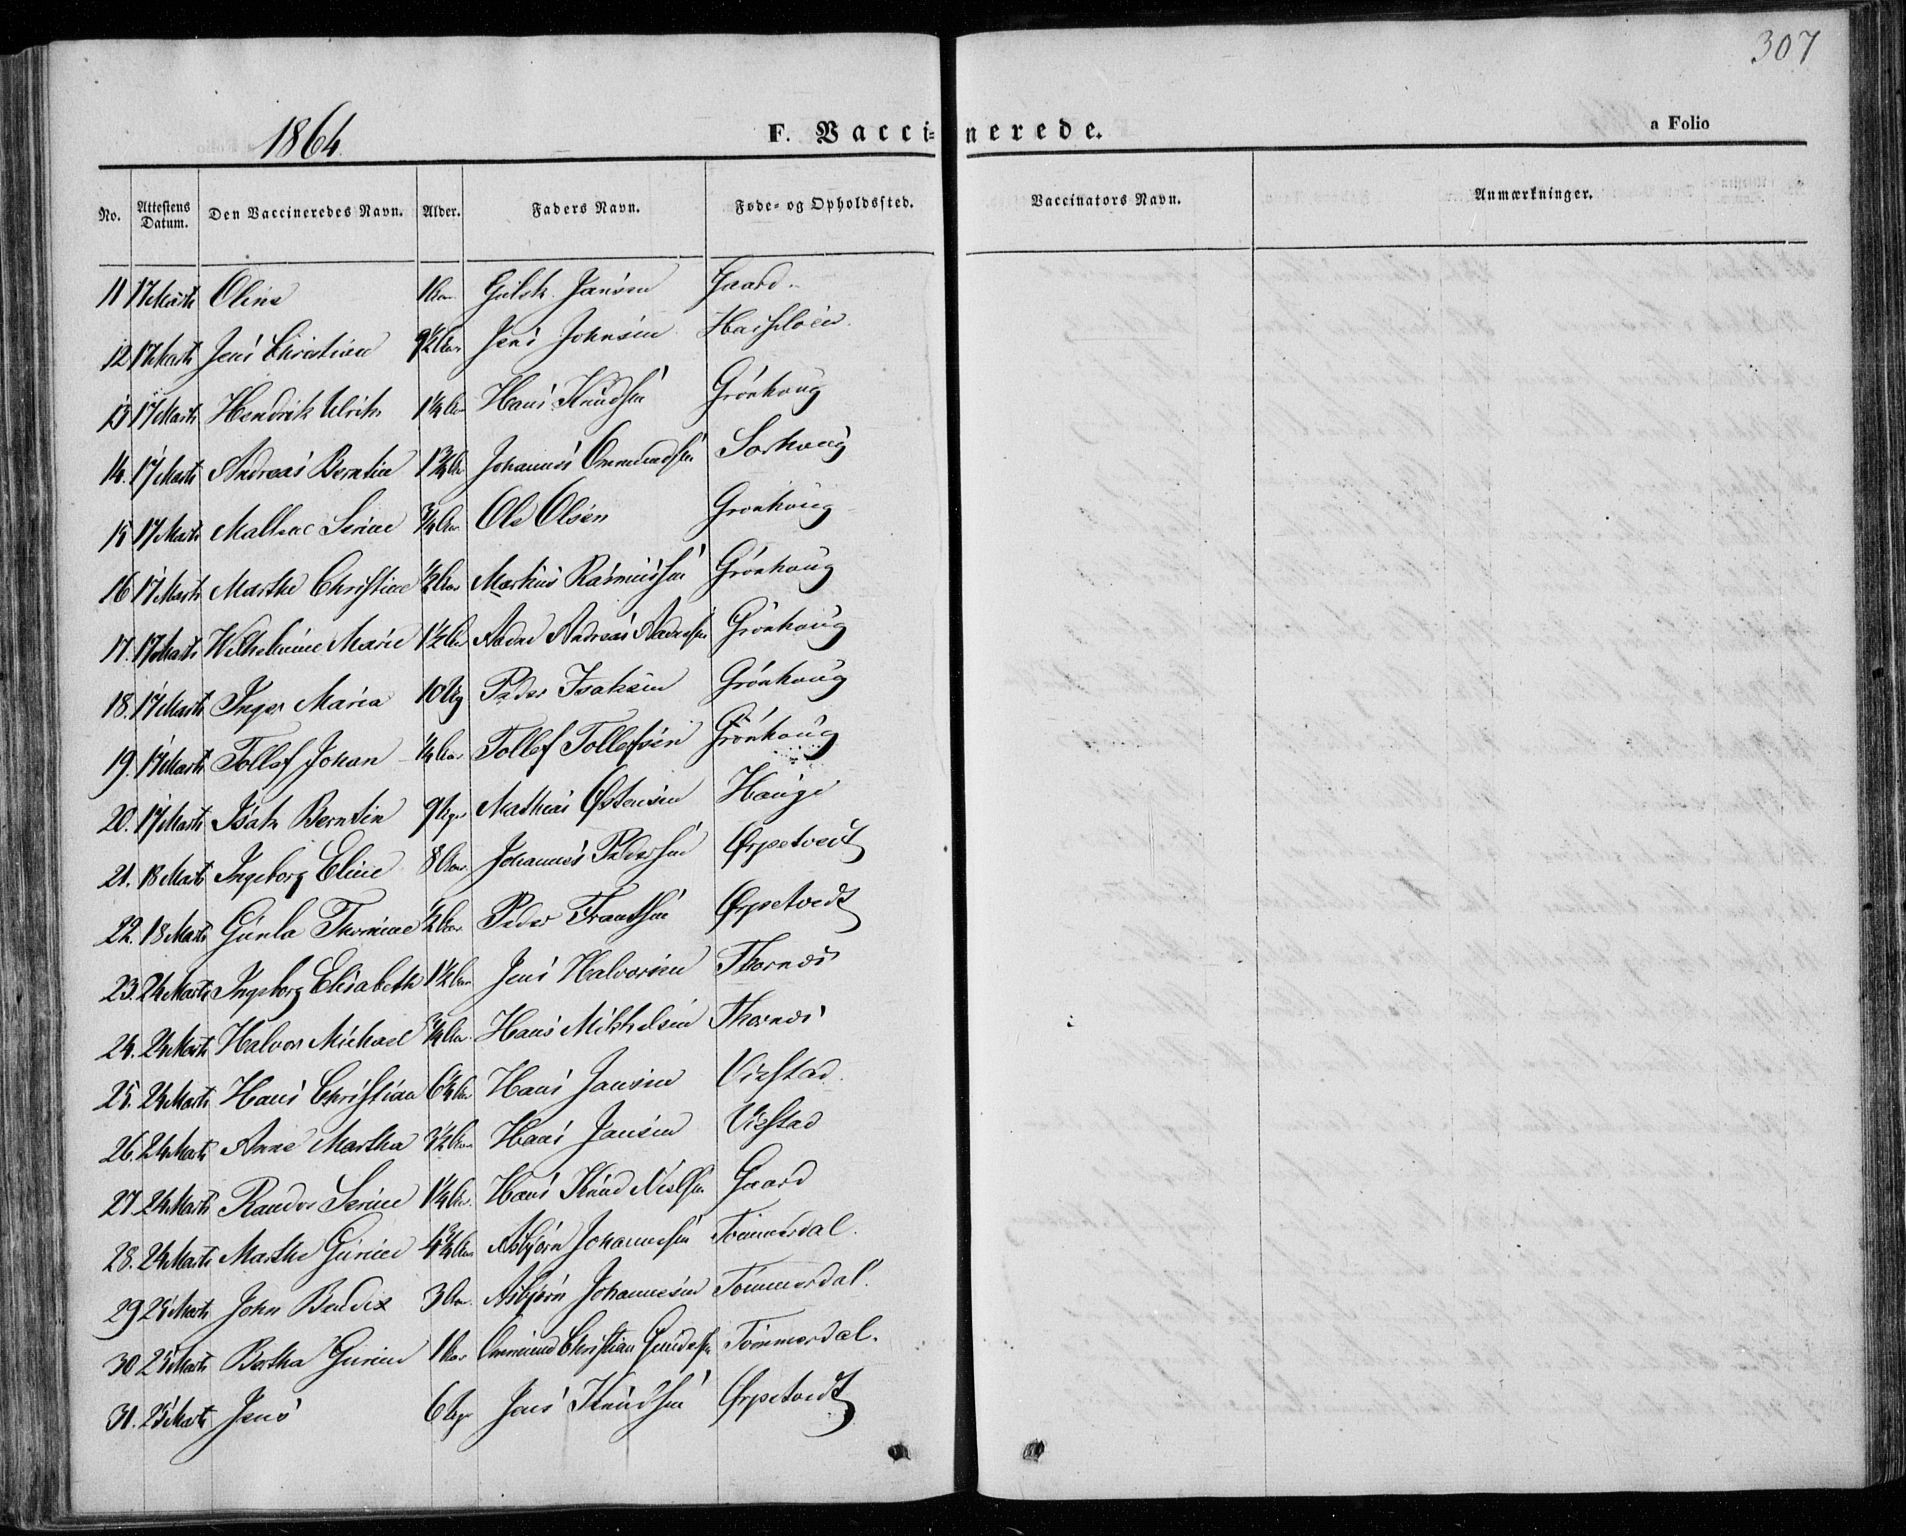 307
1864
F. Vaccinerede.
a Folio
No. Attestens Datum. Den Vaccineredes Navn. Alder. Faders Navn. Føde- og Opholdssted. Vaccinators Navn. Anmærkninger.
11 17 Marts Oline 1 Aar Jansen Gaard
12 17 Marts Jens Christian 9½ Aar Jens Johnsen
13 17 Marts Hendrik Ulrik 1¼ Aar Hans Knudsen Grönhoug
14. 17 Marts Andreas Berntin 1¾ Aar Johannes Ommundsen Sørhoug
15 17 Marts Malene Serine ¾ Aar Ole Olsen Grønhoug
16 17 Marts Marthe Christine ½ Aar Markus Rasmussen Grönhoug
17. 17 Marts Wilhelmine Marie 1½ Aar Aadne Andreas Aadnesen Grönhoug
18. 17 Marts Inger Maria 10 Ug Peder Isaksen Grönhoug
19. 17 Marts Tollef Johan ¼ Aar Tollef Tollefsen Grönhoug
20. 17 Marts Isak Berntin 9 Uger Mathias Østensen Hauge
21. 18 Marts Ingeborg Eline 8 Aar Johannes Pedersen Ørpetvedt
22. 18 Marts Gunla Thomine ½ Aar Peder Frantsen Ørpetvedt
23. 24 Marts Ingeborg Elisabeth 1½ Aar Jens Halvorsen Thornæs
24. 24 Marts Halvor Michael ¾ Aar Hans Mikkelsen Thornæs
25. 24 Marts Hans Christian 6¼ Aar Hans Jansen Viestad
26. 24 Marts Anne Martha 3½ Aar Hans Jansen Viestad
27. 24 Marts Randor Serine 1¼ Aar Hans Knud Nielsen Gaard
28. 24 Marts Marthe Gurine 4¾ Aar Asbjørn Johannesen Tömmerdal.
29 25 Marts John Bendix 3 Aar Asbjørn Johannesen Tömmerdal.
30 25 Marts Bertha Gurine 1 Aar Ommund Christian Tömmerdal.
31. 25 Marts Jens 6 Uger Jens Knudsen Ørpetvedt